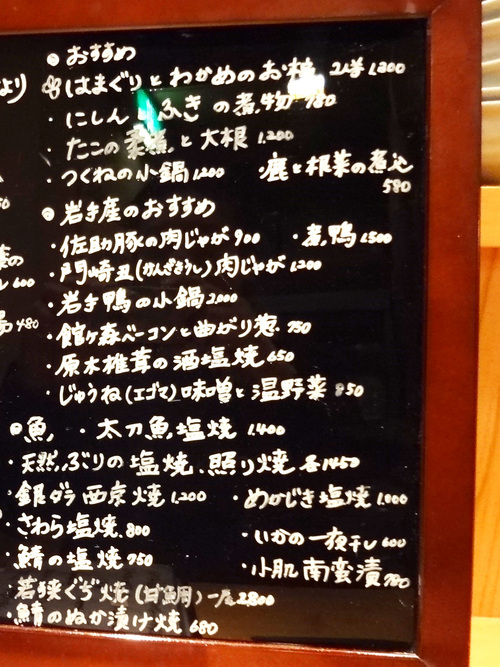 おすすめ
はまぐりとわかめのお椀 1,200
・にしんとふきの煮物 780
・たこの柔煮と大根 1,200
・つくねの小鍋 1,200 ・鹿と根菜の煮込 580
岩手産のおすすめ
・佐助豚の肉じゃが 900 ・煮鴨 1,500
・門崎丑(かんざきうし)肉じゃが 1,200
・岩手鴨の小鍋 2,000
・館ヶ森ベーコンと曲がり葱 750
・原木椎茸の酒塩焼 650
・じゅうね(エゴマ)味噌と温野菜 850
魚 ・太刀魚塩焼 1,400
・天然ぶりの塩焼、照り焼 各1450
・銀ダラ西京焼 1,200 ・めかじき塩焼 1,000
・さわら塩焼 800
・いかの一夜干し 600
・鯖の塩焼 750
・小肌南蛮漬 780
・若狭ぐぢ焼(甘鯛)一尾 2800
・鯖のぬか漬け焼 680
より
600
480